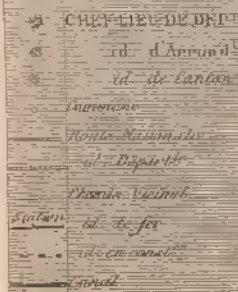 CHEF-LIEU DE DÉPT
id. d'Arrondt
id. de Canton
Commune
Route Nationale
id. Départle
Chemin Vicinal
Station id. de fer
id. en conston
Canal